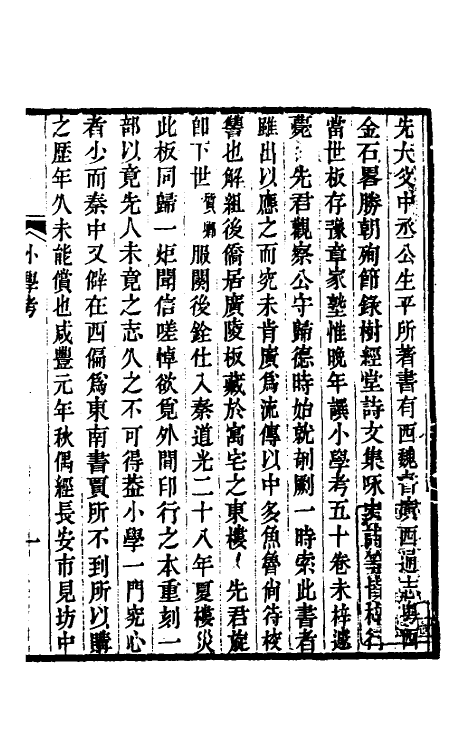 先大父中丞公生平所著書有西魏書廣西通志粵西
金石畧勝朝殉節錄樹經堂詩文集咏史詩等皆梓行
當世板存豫章家塾惟晚年譔小學考五十卷未梓遽
薨 先君觀察公守歸德時始就剞劂一時索此書者
雖出以應之而究未肯廣爲流傳以中多魚魯尙待校
讐也解組後僑居廣陵板藏於寓宅之東樓 先君旋
卽下世質卿服闋後銓仕入秦道光二十八年夏樓災
此板同歸一炬聞信嗟悼欲覔外間印行之本重刻一
部以竟先人未竟之志久之不可得葢小學一門究心
者少而秦中又僻在西偏爲東南書賈所不到所以購
之歴年久未能償也咸豐元年秋偶經長安市見坊中
小學考
一